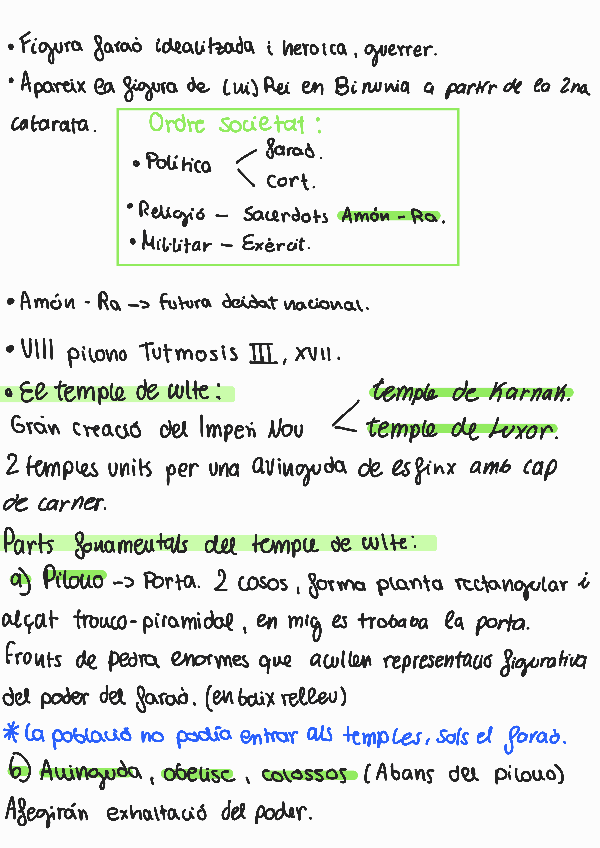 • Figura faraó idealitzada i heroica, guerrer.
• Apareix la figura de (ui) Rei en Binunia a partir de la 2na
catarata.
Ordre societat:
• Política
faraó.
cort.
• Religió – Sacerdots Amón-Ra.
• Militar – Exèrcit.
• Amón - Ra -> futura deidat nacional.
• VIII pilono Tutmosis III, XVII.
• El temple de culte:
temple de Karnak.
Gran creació del Imperi Nou
temple de Luxor.
2 temples units per una avinguda de esfinx amb cap
de carner.
Parts fonamentals del temple de culte:
a) Pilono -> Porta. 2 cosos, forma planta rectangular i
alçat tronco-piramidal, en mig es trobaba la porta.
Fronts de pedra enormes que acullen representació figurativa
del poder del faraó. (en baix relleu)
* la població no podía entrar als temples, sols el faraó.
b) Avinguda, obelisc, colossos (Abans del pilono)
Afegirán exhaltació del poder.